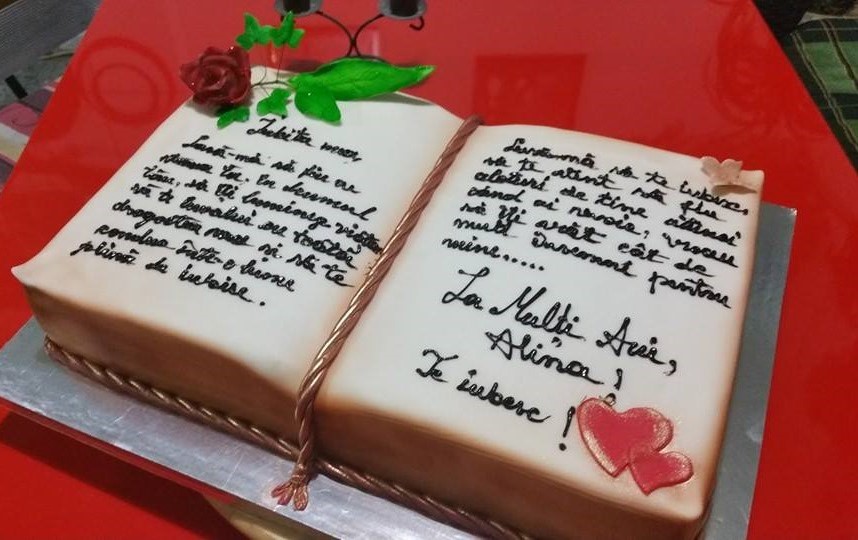 Iubita mea,
Lasă-mă să fiu eu
numai eu în drumul
tău, să îți luminez viața
să te învălui cu toată
dragostea mea și să te
conduc într-o lume
plină de iubire.
Lasă-mă să te iubesc,
să te alint să fiu
alături de tine atunci
când ai nevoie, vreau
să îți arăt cât de
mult însemni pentru
mine.....
La Mulți Ani,
Alina!
Te iubesc!